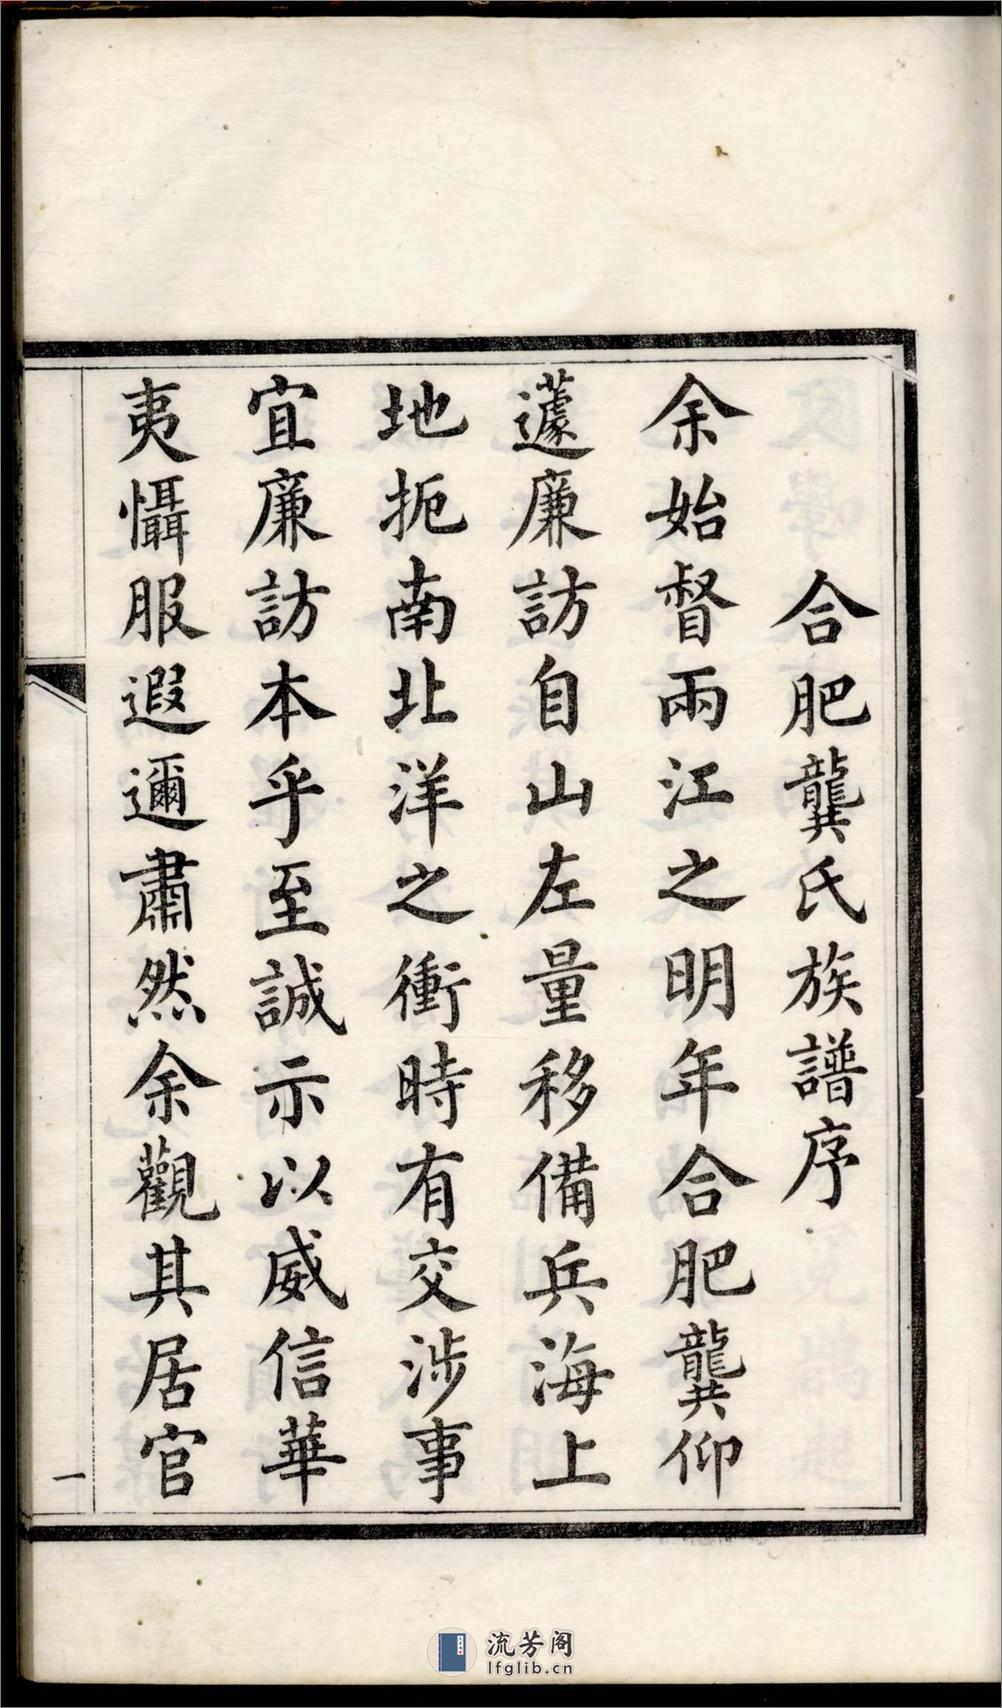 合肥龔氏族譜序
余始督兩江之明年合肥龔仰
蘧廉訪自山左量移備兵海上
地扼南北洋之衝時有交涉事
宜廉訪本乎至誠示以威信華
夷懾服遐邇肅然余觀其居官
一
流芳阁
lfglib.cn